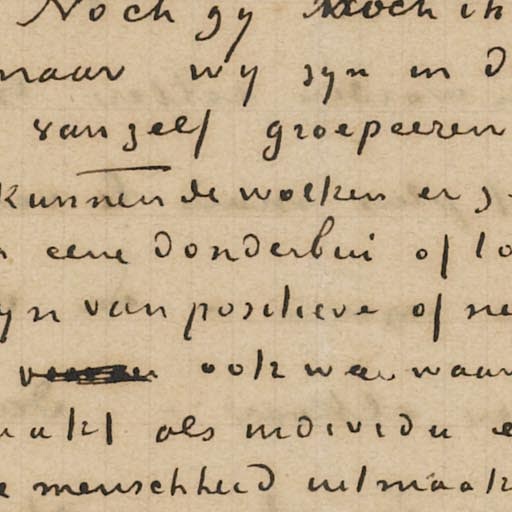 Noch gy noch ik
maar wy zyn in d
vanzelf groepeeren
kunnen de wolken er z
eene donderbui of lo
yn van positieve of ne
ook wel waar
aakt als individu e
e menschheid uitmaak